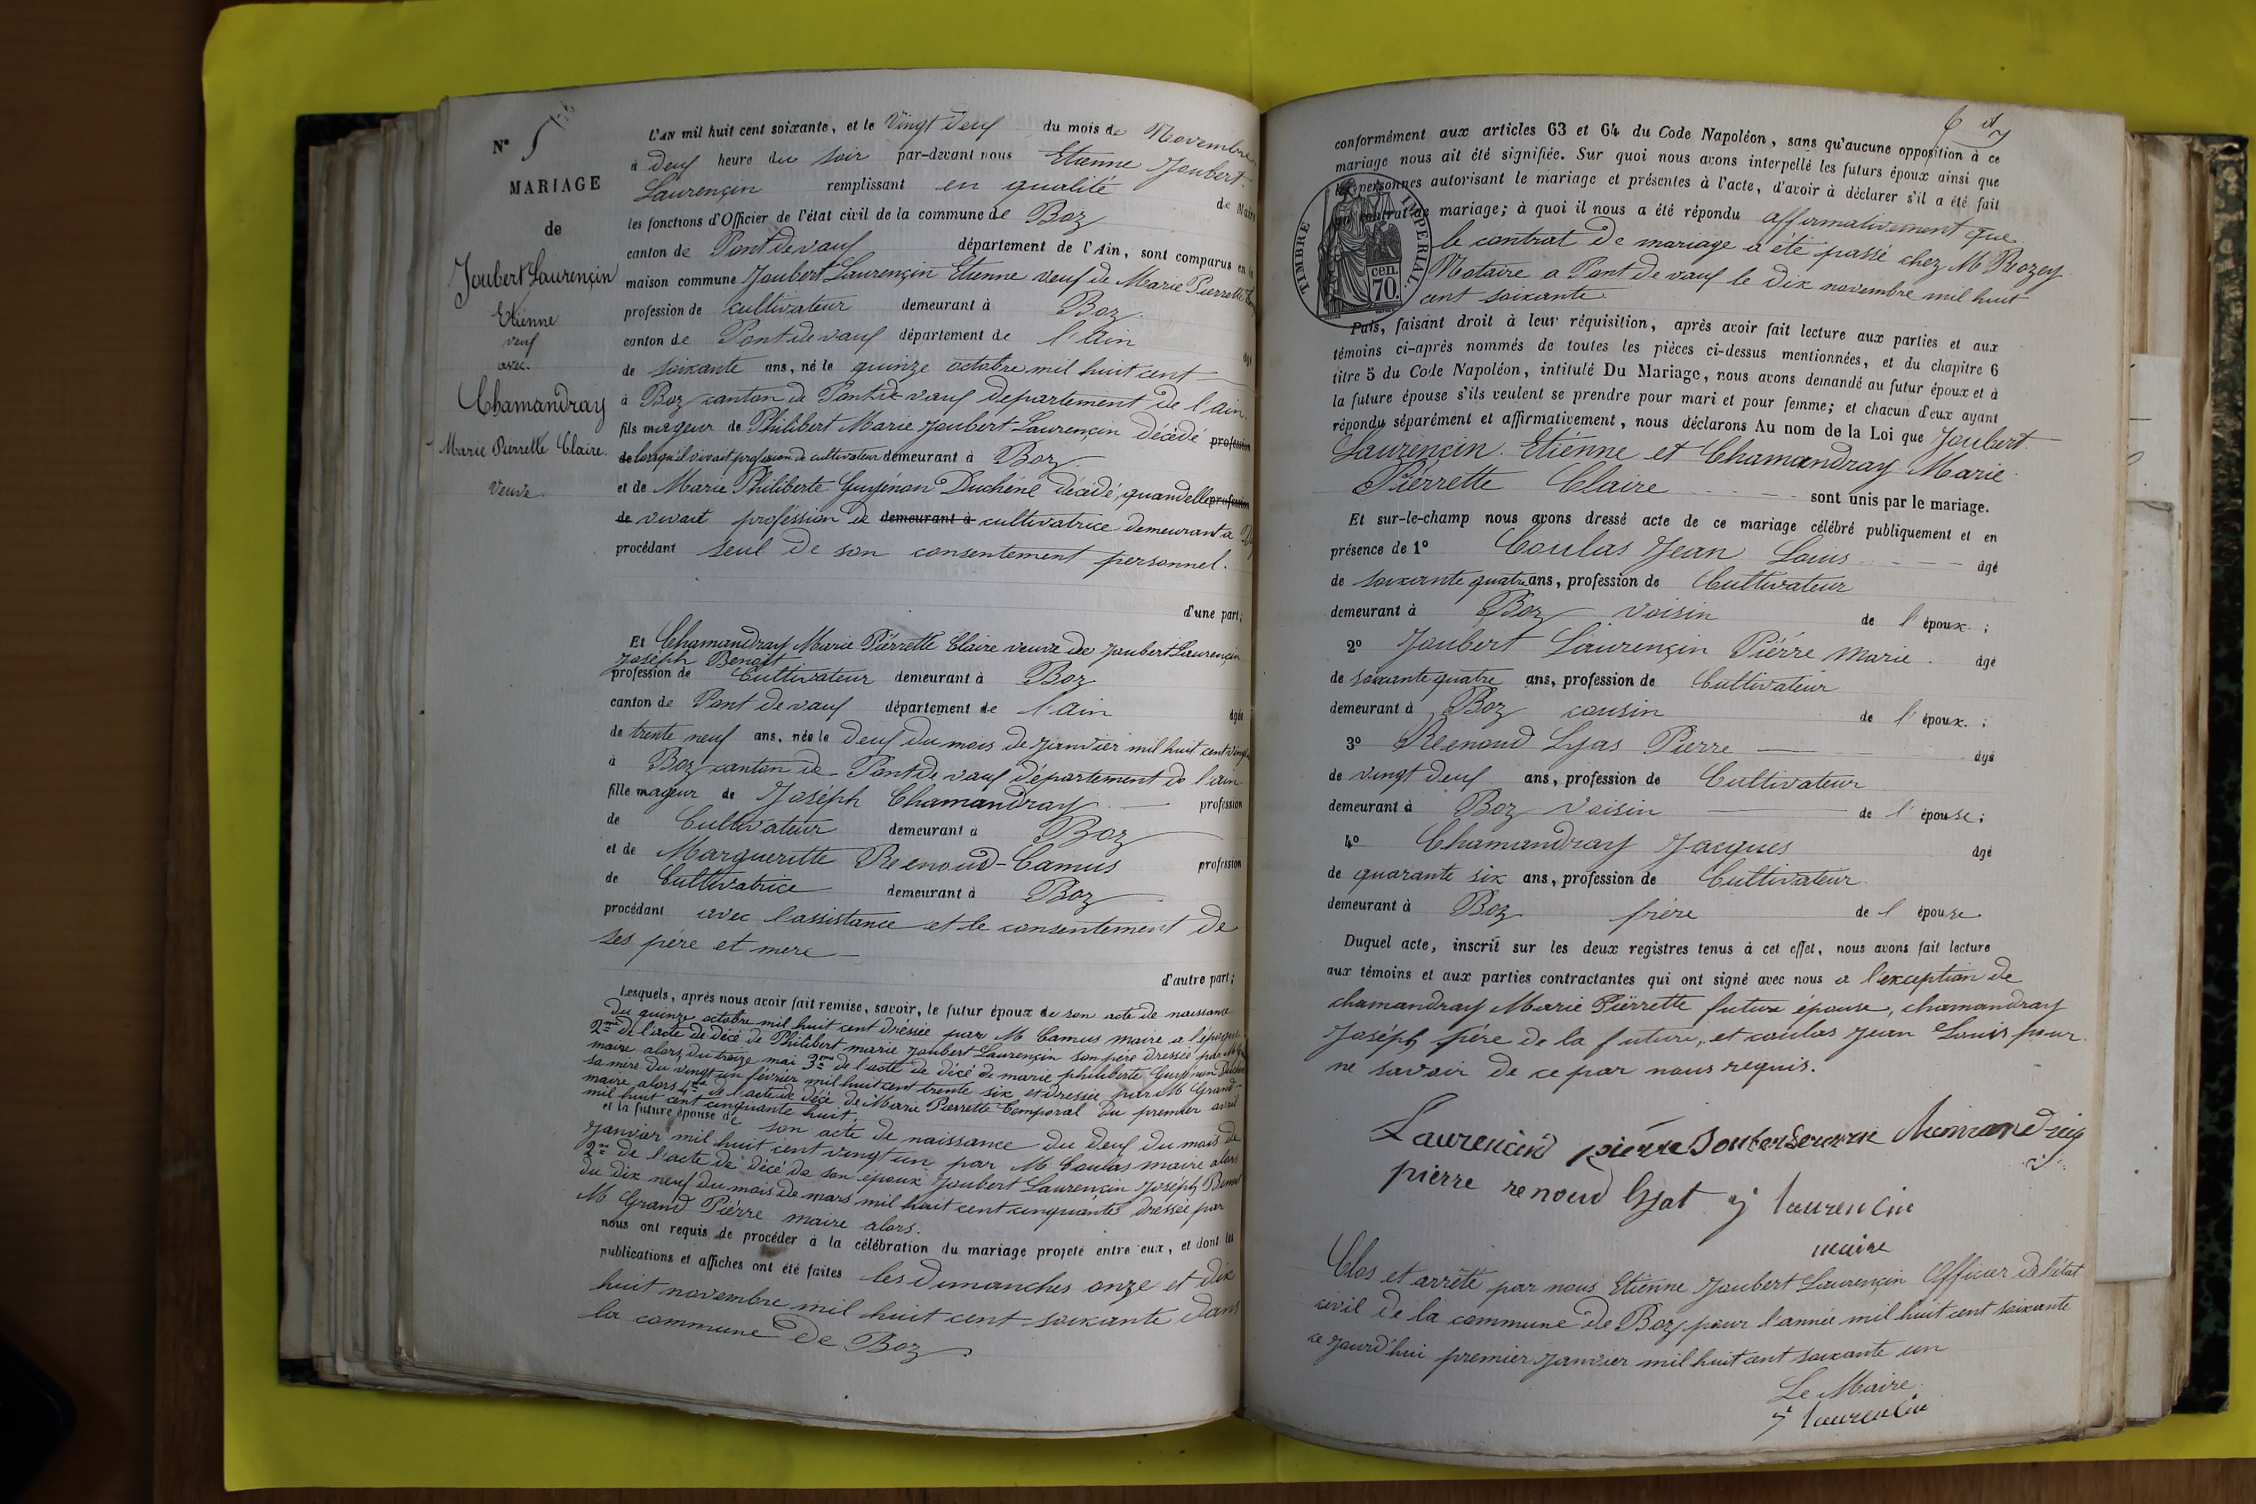 N° 5
MARIAGE
de
Joubert Laurençin
Etienne
veuf
avec
Chamandray
Marie Pierrette Claire
Veuve
L'AN mil huit cent soixante, et le Vingt deuf du mois de Novembre
à deuf heure du soir par-devant nous Etienne Joubert
Laurençin remplissant en qualité de Maire
les fonctions d'Officier de l'état civil de la commune de Boz
canton de Pont de vauf département de l'Ain, sont comparus en la
maison commune Joubert Laurençin Etienne veuf de Marie Pierrette
profession de cultivateur demeurant à Boz
canton de Pont de vauf département de l'ain âgé
de soixante ans, né le quinze octobre mil huit cent
à Boz canton de Pont de vauf département de l'ain
fils mageur de Philibert Marie Joubert Laurençin décédé profession
de lorsqu'il vivait profession de cultivateur demeurant à Boz
et de Marie Philiberte Guyénon Duchéné décédé, quand elle profession
de vivait profession de demeurant à cultivatrice demeurant a
procédant seul de son consentement personnel.
d'une part;
Et Chamandray Marie Pièrrette Claire veuve de Joubert Laurençin
Joséph Benoit
profession de Cultivateur demeurant à Boz
canton de Pont de vauf département de l'ain âgée
de trente neuf ans, née le deuf du mois de Janvier mil huit cent vingt
à Boz canton de Pont de vauf département de l'ain
fille mageur de Joséph Chamandray profession
de Cultivateur demeurant à Boz
et de Margueritte Renoud-Camus profession
de Cultivatrice demeurant à Boz
procédant avec l'assistance et le consentement de
ses père et mere
d'autre part;
Lesquels, après nous avoir fait remise, savoir, le futur époux de son acte de naissance
du quinze octobre mil huit cent dréssée par M Camus maire a l'époque
2me de l'acte de décé de Philibert marie Joubert Laurençin son père dressée par M
maire alors du treize mai 3me de l'acte de décé de marie philiberte Guyénon Duchéné
sa mere du vingt un février mil huit cent trente six et dressée par M Grand
maire alors 4me de l'acte de décé de Marie Pierrette Temporal du premier avril
mil huit cent cinquante huit.
et la future épouse de son acte de naissance du deuf du mois de
Janvier mil huit cent vingt un par M Coulas maire alors
2me de l'acte de décé de son époux Joubert Laurençin Joséph Benoit
du dix neuf du mois de mars mil huit cent cinquante dréssée par
M Grand Pièrre maire alors.
nous ont requis de procéder à la célébration du mariage projeté entre eux, et dont les
publications et affiches ont été faites les dimanches onze et dix
huit novembre mil huit cent soixante dans
la commune de Boz
conformément aux articles 63 et 64 du Code Napoléon, sans qu'aucune opposition à ce
mariage nous ait été signifiée. Sur quoi nous avons interpellé les futurs époux ainsi que
les personnes autorisant le mariage et présentes à l'acte, d'avoir à déclarer s'il a été fait
un contrat de mariage; à quoi il nous a été répondu affirmativement que
le contrat de mariage a été passé chez M Rozey
Notaire a Pont de vauf le dix novembre mil huit
cent soixante
TIMBRE IMPÉRIAL
cen. 70.
Puis, faisant droit à leur réquisition, après avoir fait lecture aux parties et aux
témoins ci-après nommés de toutes les pièces ci-dessus mentionnées, et du chapitre 6
titre 5 du Code Napoléon, intitulé Du Mariage, nous avons demandé au futur époux et à
la future épouse s'ils veulent se prendre pour mari et pour femme; et chacun d'eux ayant
répondu séparément et affirmativement, nous déclarons Au nom de la Loi que Joubert
Laurençin Etiénne et Chamandray Marie
Pièrrette Claire sont unis par le mariage.
Et sur-le-champ nous avons dressé acte de ce mariage célébré publiquement et en
présence de 1° Coulas Jean Louis âgé
de soixante quatre ans, profession de Cultivateur
demeurant à Boz voisin de l'époux;
2° Joubert Laurençin Pièrre Marie âgé
de soixante quatre ans, profession de Cultivateur
demeurant à Boz cousin de l'époux;
3° Renoud Lyas Pierre âgé
de vingt deuf ans, profession de Cultivateur
demeurant à Boz Voisin de l'épouse;
4° Chamandray Jacques âgé
de quarante six ans, profession de Cultivateur
demeurant à Boz frère de l'épouse
Duquel acte, inscrit sur les deux registres tenus à cet effet, nous avons fait lecture
aux témoins et aux parties contractantes qui ont signé avec nous a l'exception de
chamandray Marie Pièrrette future épouse, chamandray
Joséph père de la future, et coulas Jean Louis pour
ne savoir de ce par nous requis.
Laurencin pierre Joubert
pierre renoud lyat J laurencin
maire
Clos et arrêté par nous Etienne Joubert Laurençin Officier de l'état
civil de la commune de Boz pour l'année mil huit cent soixante
ce jourd'hui premier Janvier mil huit cent soixante un
Le Maire
J laurencin